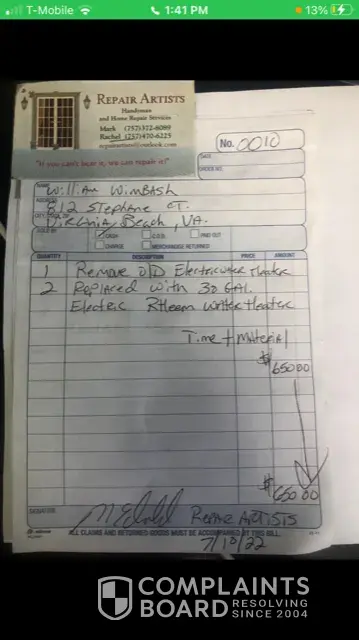 T-Mobile
1:41 PM
13%
REPAIR ARTISTS
Handyman
and Home Repair Services
Mark (757)372-8089
Rachel (257)470-6225
repairartists@outlook.com
"If you can't bear it, we can repair it!"
No. 0010
DATE
ORDER NO.
NAME
William Wimbash
ADDRESS
812 Stephanie CT.
Virginia Beach, VA.
SOLD BY
CASH
C.O.D.
PAID OUT
CHARGE
MERCHANDISE RETURNED
QUANTITY DESCRIPTION PRICE AMOUNT
1 Remove OlD Electric water Heater
2 Replaced with 30 GAL.
Electric Rheem water Heater
Time + Material
$ 650 00
$ 650 00
SIGNATURE
Repair ARTISTS
ALL CLAIMS AND RETURNED GOODS MUST BE ACCOMPANIED BY THIS BILL.
7/10/22
COMPLAINTS
BOARD RESOLVING
SINCE 2004